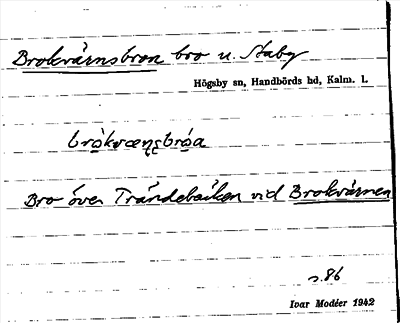 Brokvärnsbron bro u. Staby
Högsby sn, Handbörds hd, Kalm. l.
Bro över Trändebäcken vid Brokvärnen
s. 86
Ivar Modéer 1942